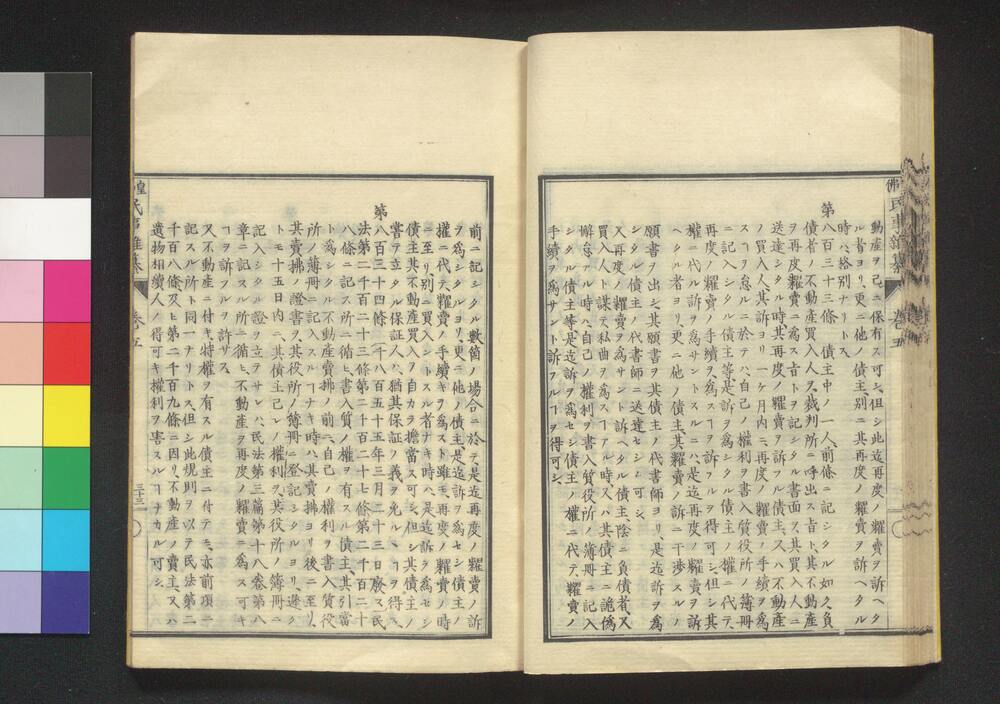 動產ヲ己ニ保有ス可シ、但シ此迄再度ノ糶賣ヲ訴ヘタ
ル者ヨリ、更ニ他ノ債主別ニ其再度ノ糶賣ヲ訴ヘタル
時ハ格別ナリトス、
第八百三十三條 債主中ノ一人、前條ニ記シタル如ク、負
債者ノ不動產買入人ヲ、裁判所ニ呼出ス旨ト、其不動產
ヲ再度糶賣ニ為ス旨トヲ記シタル書面ヲ、其買入人ニ
送達シタル時、其再度ノ糶賣ヲ訴ヘタル債主、又ハ不動產
ノ買入人、其訴ヨリ一ケ月内ニ、再度ノ糶賣ノ手續ヲ為
スヿヲ怠ルニ於テハ、自己ノ權利ヲ書入質役所ノ簿冊
ニ記入シタル債主等、是訴ヲ為シタル債主ノ權ニ代テ、
再度ノ糶賣ノ手續ヲ、為スヿヲ訴フルヲ得可シ、但シ其
權ニ代ル訴ヲ為サントスルニハ、是迄再度ノ糶賣ヲ訴
ヘタル者ヨリ、更ニ他ノ債主、其糶賣ノ訴ニ干渉スルノ
願書ヲ出シ、其願書ヲ其債主ノ代書師ヨリ、是迄訴ヲ為
シタル債主ノ代書師ニ送達セシム可シ、
又再度ノ糶賣ヲ為サント訴ヘタル債主、陰ニ負債者、又
買入人ト謀テ、私曲ヲ為スヿアル時、又ハ其債主ニ詭偽
懈怠アル時ハ、自己ノ權利ヲ書入質役所ノ簿冊ニ記入
シタル債主等、是迄訴ヲ為セシ債主ノ權ニ代テ、糶賣ノ
手續ヲ為サント訴フルヿヲ得可シ、
前ニ記シタル數箇ノ場合ニ於テ、是迄再度ノ糶賣ノ訴
ヲ為シタルヨリ、更ニ他ノ債主、是迄訴ヲ為セシ債主ノ
權ニ代テ、糶賣ノ手續キヲ為スト雖モ、再度ノ糶賣ノ時
ニ至リ、別ニ買入レントスル者ナキ時ハ、是迄訴ヲ為セシ
債主、其不動產買入ヲ自カラ擔當ス可シ、但シ其債主ノ
嘗テ立タル保証人ハ、猶其保証ノ義ヲ免ルヽヿヲ得ス、
第八百三十四條 〔千八百五十五年三月二十三日廢ス〕民
法第二千百二十三條第二千百二十七條第二千百二十
八條ニ記ス所ニ循ヒ、書入質ノ權ヲ有スル債主、其引當
ト為シタル不動產賣拂ノ前ニ、自己ノ權利ヲ書入質役
所ノ簿冊ニ記入スルヿナキ時ハ、其賣拂ヨリ後ニ至リ、
其賣拂ノ證書ヲ、其役所ノ簿冊ニ登記シタルヨリ、遲ク
トモ十五日内ニ、其債主己レノ權利ヲ、其役所ノ簿冊ニ
記入シタル證ヲ立テサレハ、民法第三篇第十八卷第八
章ニ記スル所ニ循ヒ、不動產ヲ再度ノ糶賣ニ為ス可キ
ヿヲ訴フルヲ許サス、
又不動產ニ付キ特權ヲ有スル債主ニ付テモ、亦前項ニ
記スル所ト同一ナリトス、但シ此規則ヲ以テ民法第二
千百八條及ヒ第二千百九條ニ因リ、不動產ノ賣主、又ハ
遺物相續人ノ得可キ權利ヲ害スルヿナカル可シ、
卷五
三十三